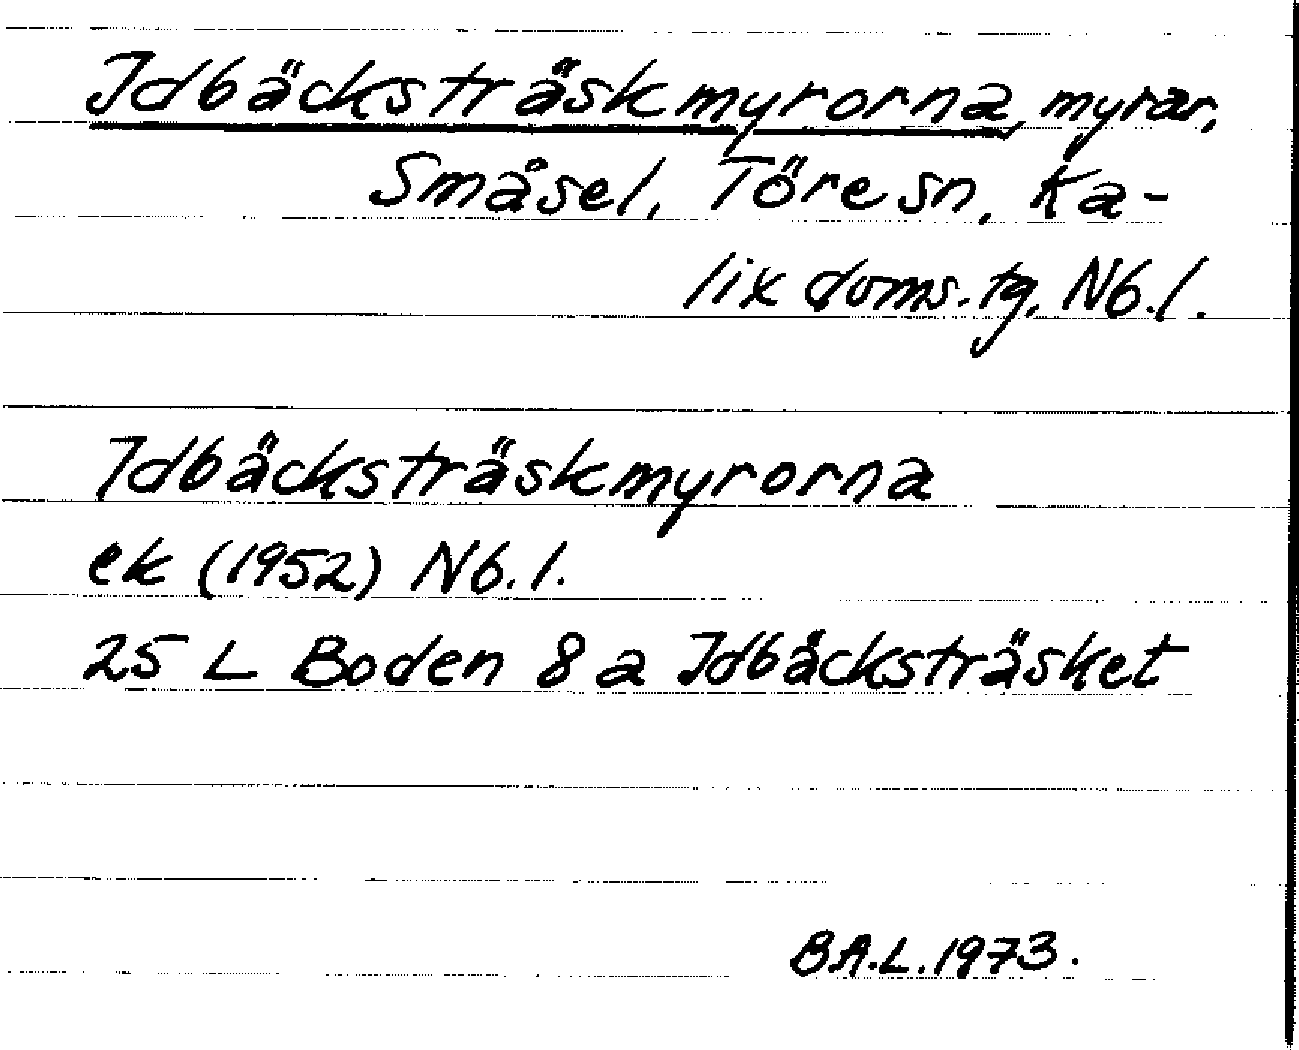 Idbäcksträskmyrorna, myrar,
Småsel, Töre sn, Ka-
lix doms. tg, Nb. l.
Idbäcksträskmyrorna
ek (1952) Nb. l.
25 L Boden 8 a Idbäcksträsket
B.A.L. 1973.